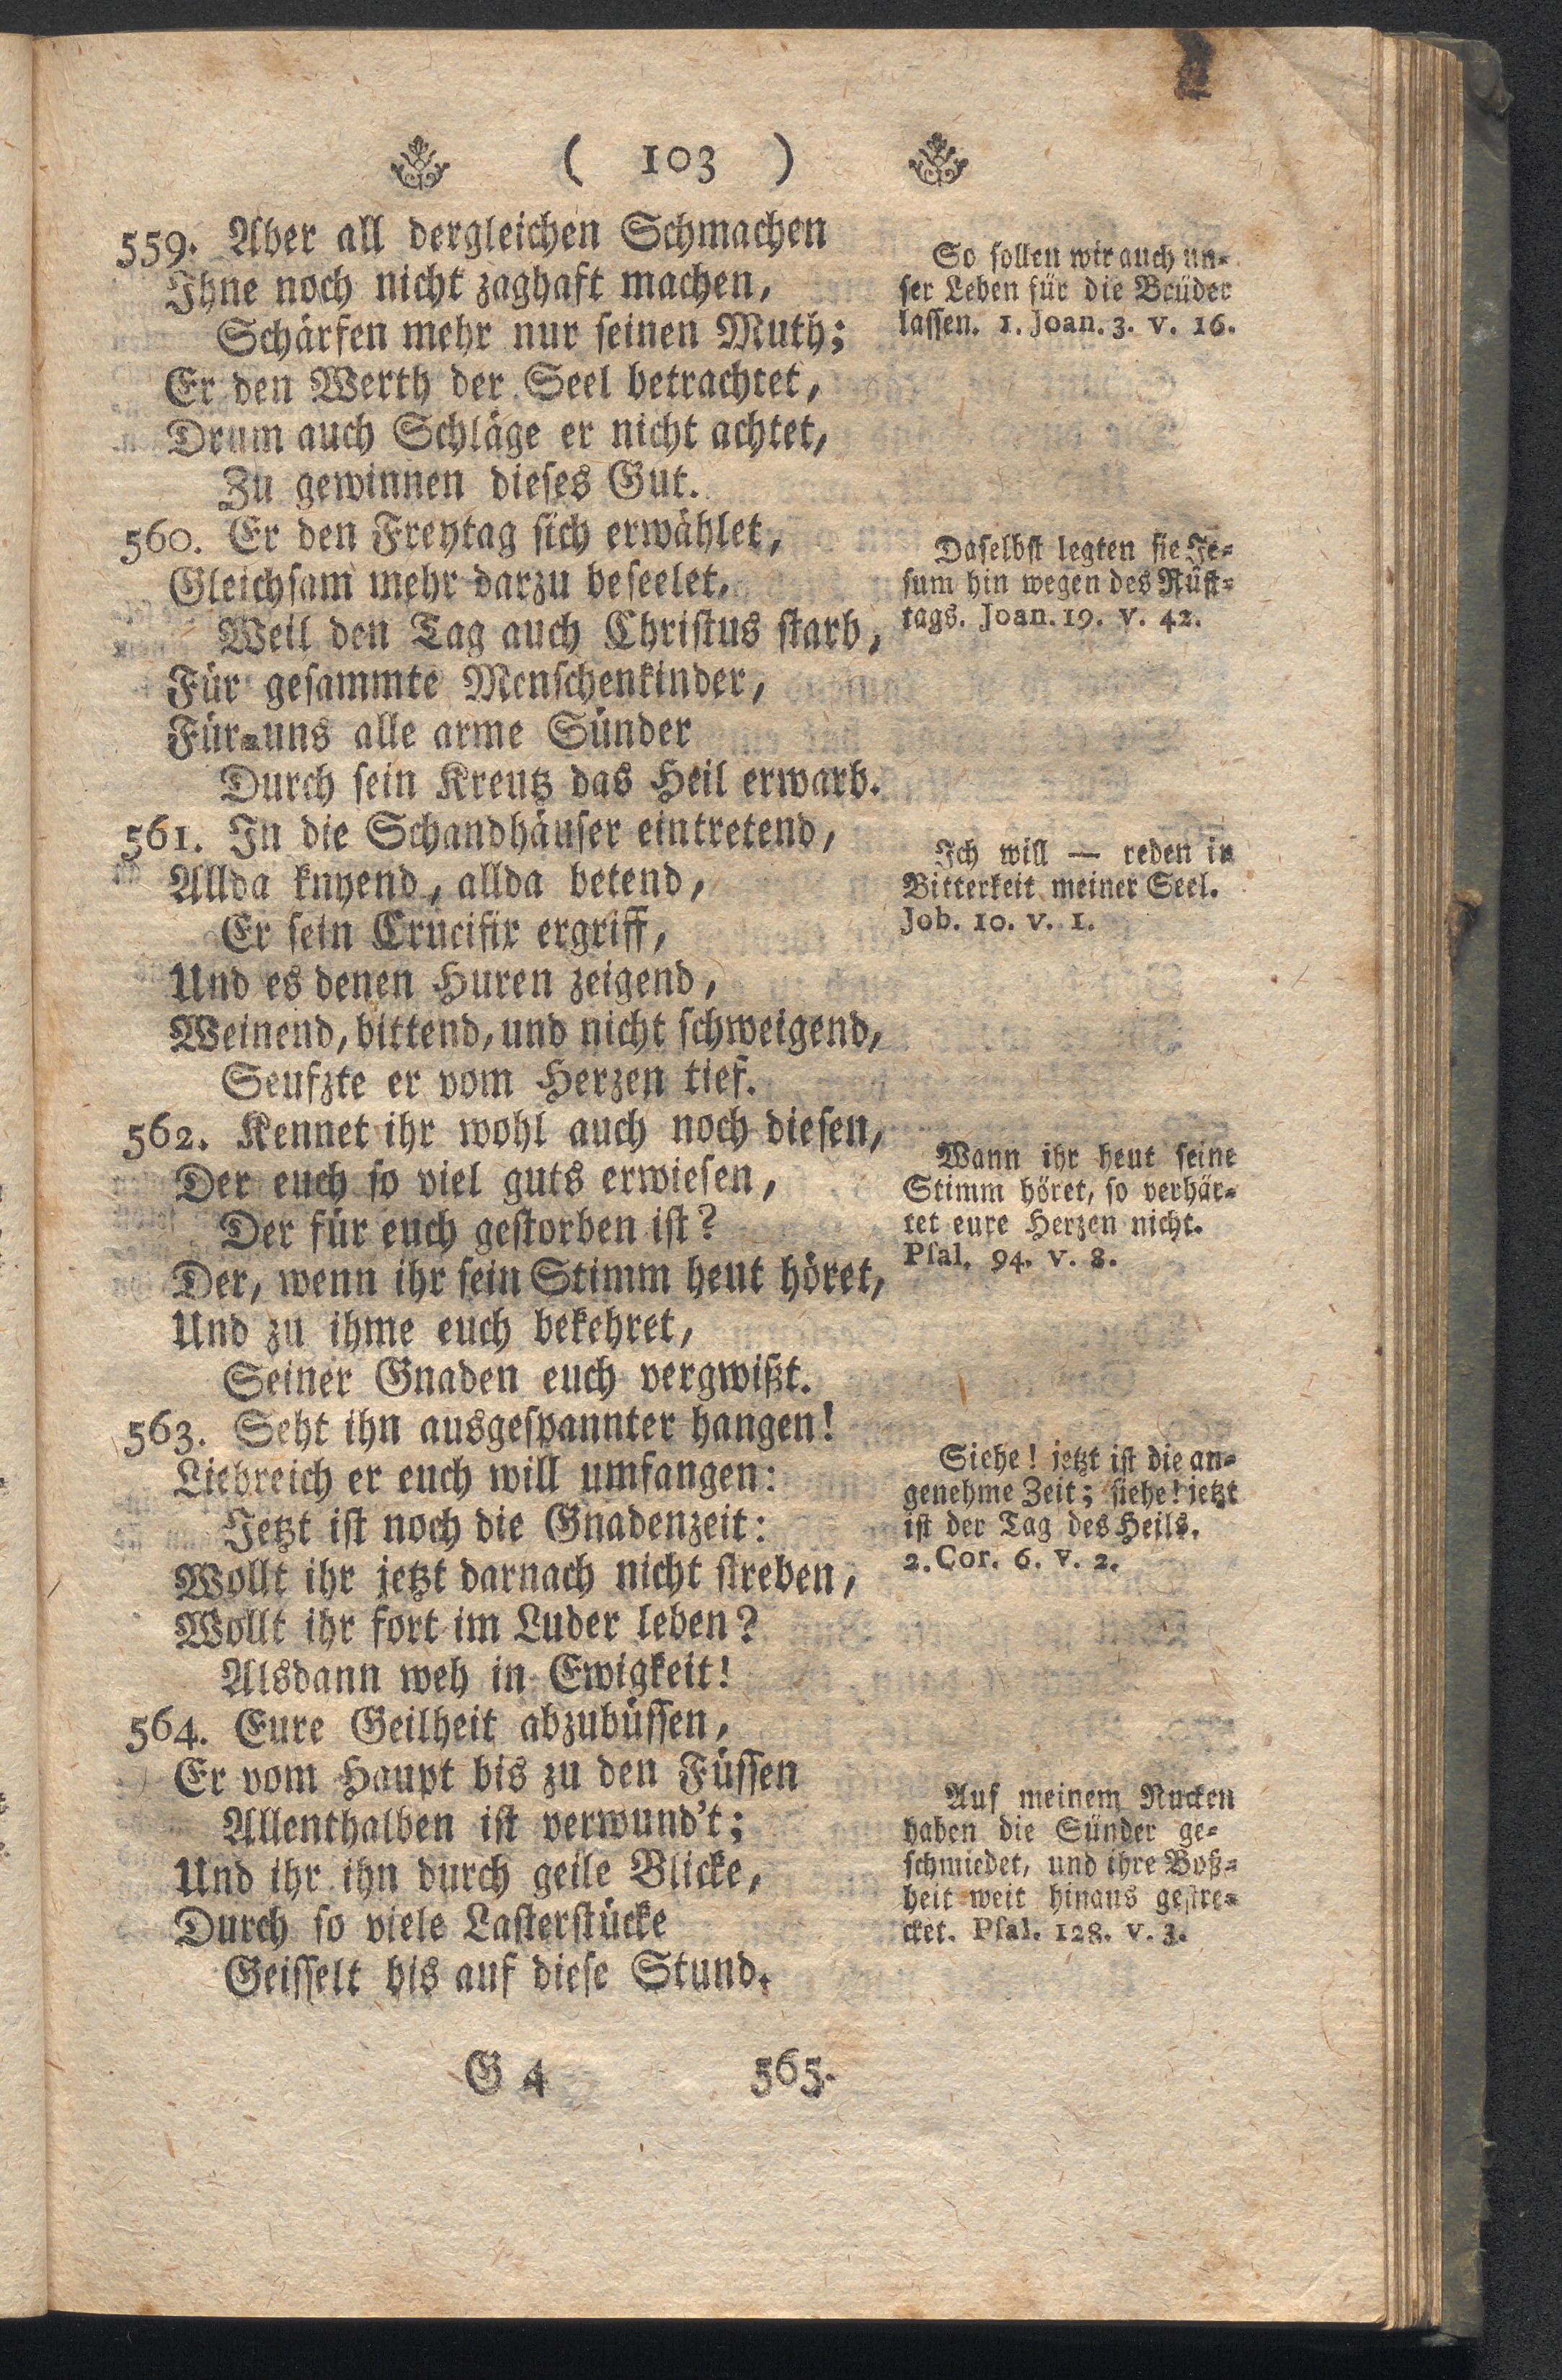 ( 103 )
559. Aber all dergleichen Schmachen
Ihne noch nicht zaghaft machen,
Schärfen mehr nur seinen Muth;
Er den Werth der Seel betrachtet,
Drum auch Schläge er nicht achtet,
Zu gewinnen dieses Gut.
So sollen wir auch un-
ser Leben für die Brüder
lassen. 1. Joan. 3. v. 16.
560. Er den Freytag sich erwählet,
Gleichsam mehr darzu beseelet,
Weil den Tag auch Christus starb,
Für gesammte Menschenkinder,
Für-uns alle arme Sünder
Durch sein Kreutz das Heil erwarb.
Daselbst legten sie Je-
sum hin wegen des Rüst-
tags. Joan. 19. v. 42.
561. In die Schandhäuser eintretend,
Allda knyend, allda betend,
Er sein Crucifix ergriff,
Und es denen Huren zeigend,
Weinend, bittend, und nicht schweigend,
Seufzte er vom Herzen tief.
Ich will — reden in
Bitterkeit meiner Seel.
Job. 10. v. 1.
562. Kennet ihr wohl auch noch diesen,
Der euch so viel guts erwiesen,
Der für euch gestorben ist?
Der, wenn ihr sein Stimm heut höret,
Und zu ihme euch bekehret,
Seiner Gnaden euch vergwißt.
Wann ihr heut seine
Stimm höret, so verhär-
tet eure Herzen nicht.
Psal. 94. v. 8.
563. Seht ihn ausgespannter hangen!
Liebreich er euch will umfangen:
Jetzt ist noch die Gnadenzeit:
Wollt ihr jetzt darnach nicht streben,
Wollt ihr fort im Luder leben?
Alsdann weh in Ewigkeit!
Siehe! jetzt ist die an-
genehme Zeit; siehe! jetzt
ist der Tag des Heils.
2. Cor. 6. v. 2.
564. Eure Geilheit abzubüssen,
Er vom Haupt bis zu den Füssen
Allenthalben ist verwund't;
Und ihr ihn durch geile Blicke,
Durch so viele Lasterstücke
Geisselt bis auf diese Stund.
Auf meinem Rucken
haben die Sünder ge-
schmiedet, und ihre Boß-
heit weit hinaus gestre-
cket. Psal. 128. v. 3.
G 4 565.